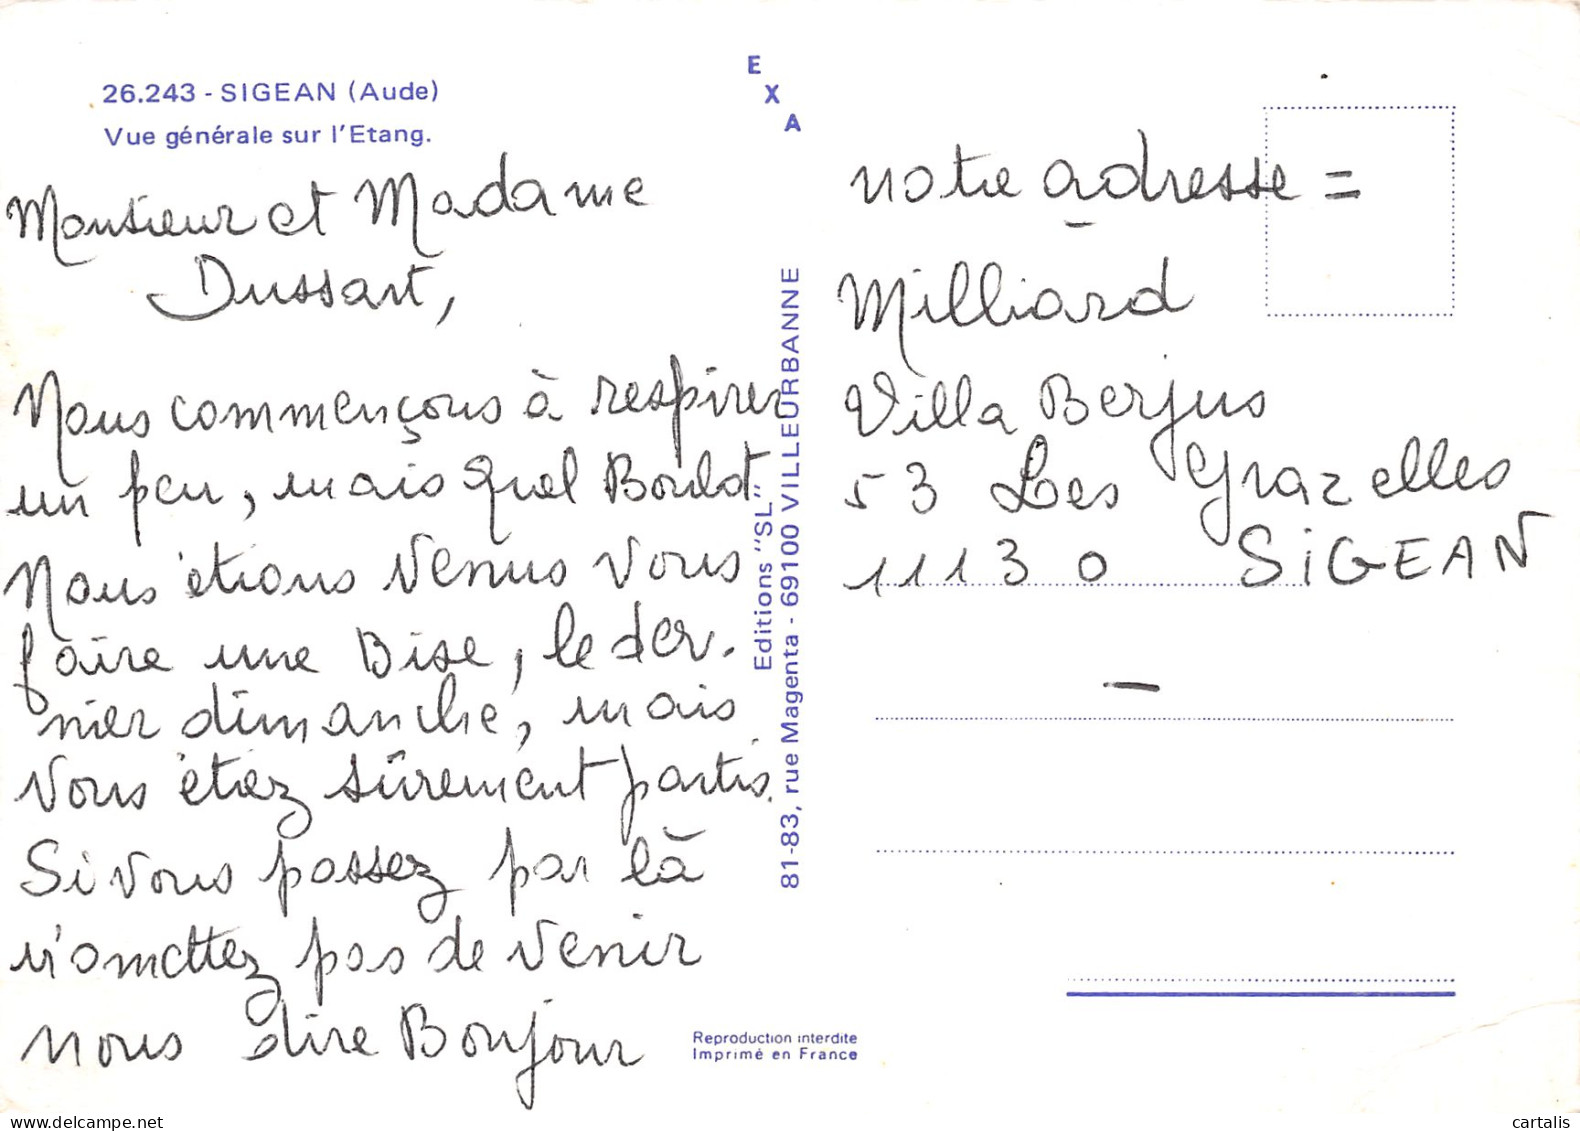 26.243 - SIGEAN (Aude)
Vue générale sur l'Etang.
Monsieur et Madame
Dussart,
Nous commençons à respirer
un peu, mais quel Boulot
Nous étions venus vous
faire une Bise, le der-
nier dimanche, mais
vous étiez sûrement partis.
Si vous passez par là
n'omettez pas de venir
nous dire Bonjour
E
X
A
Editions "SL"
81-83, rue Magenta - 69100 VILLEURBANNE
Reproduction interdite
Imprimé en France
notre adresse =
Milliard
Villa Berjus
53 Les Grazelles
11130 SiGEAN
cartalis
www.delcampe.net